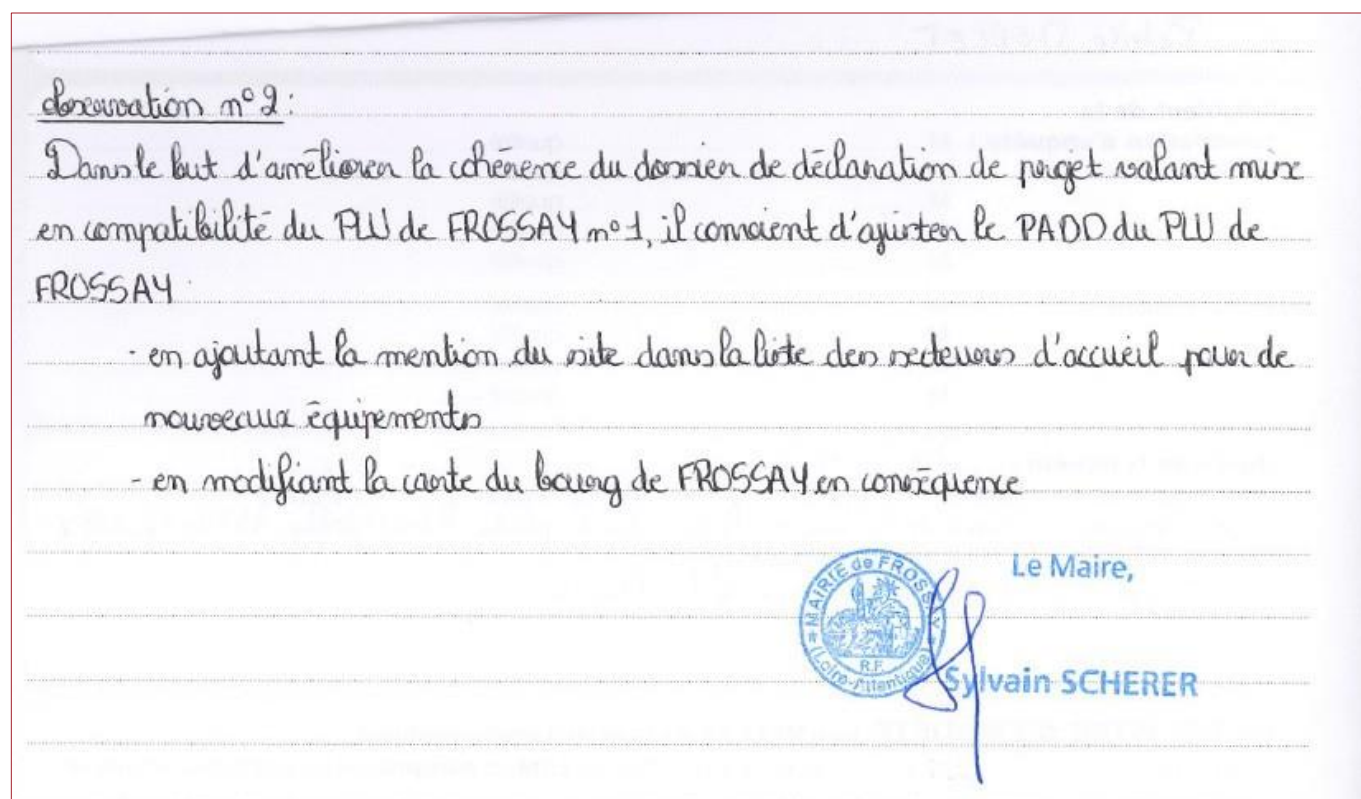 observation n° 2:
Dans le but d'améliorer la cohérence du dossier de déclaration de projet valant mise
en compatibilité du PLU de FROSSAY n° 1, il convient d'ajuster le PADD du PLU de
FROSSAY
- en ajoutant la mention du site dans la liste des secteurs d'accueil pour de
nouveaux équipements
- en modifiant la carte du bourg de FROSSAY en conséquence
Le Maire,
MAIRIE de FROSSAY
R.F.
(Loire-Atlantique)
Sylvain SCHERER